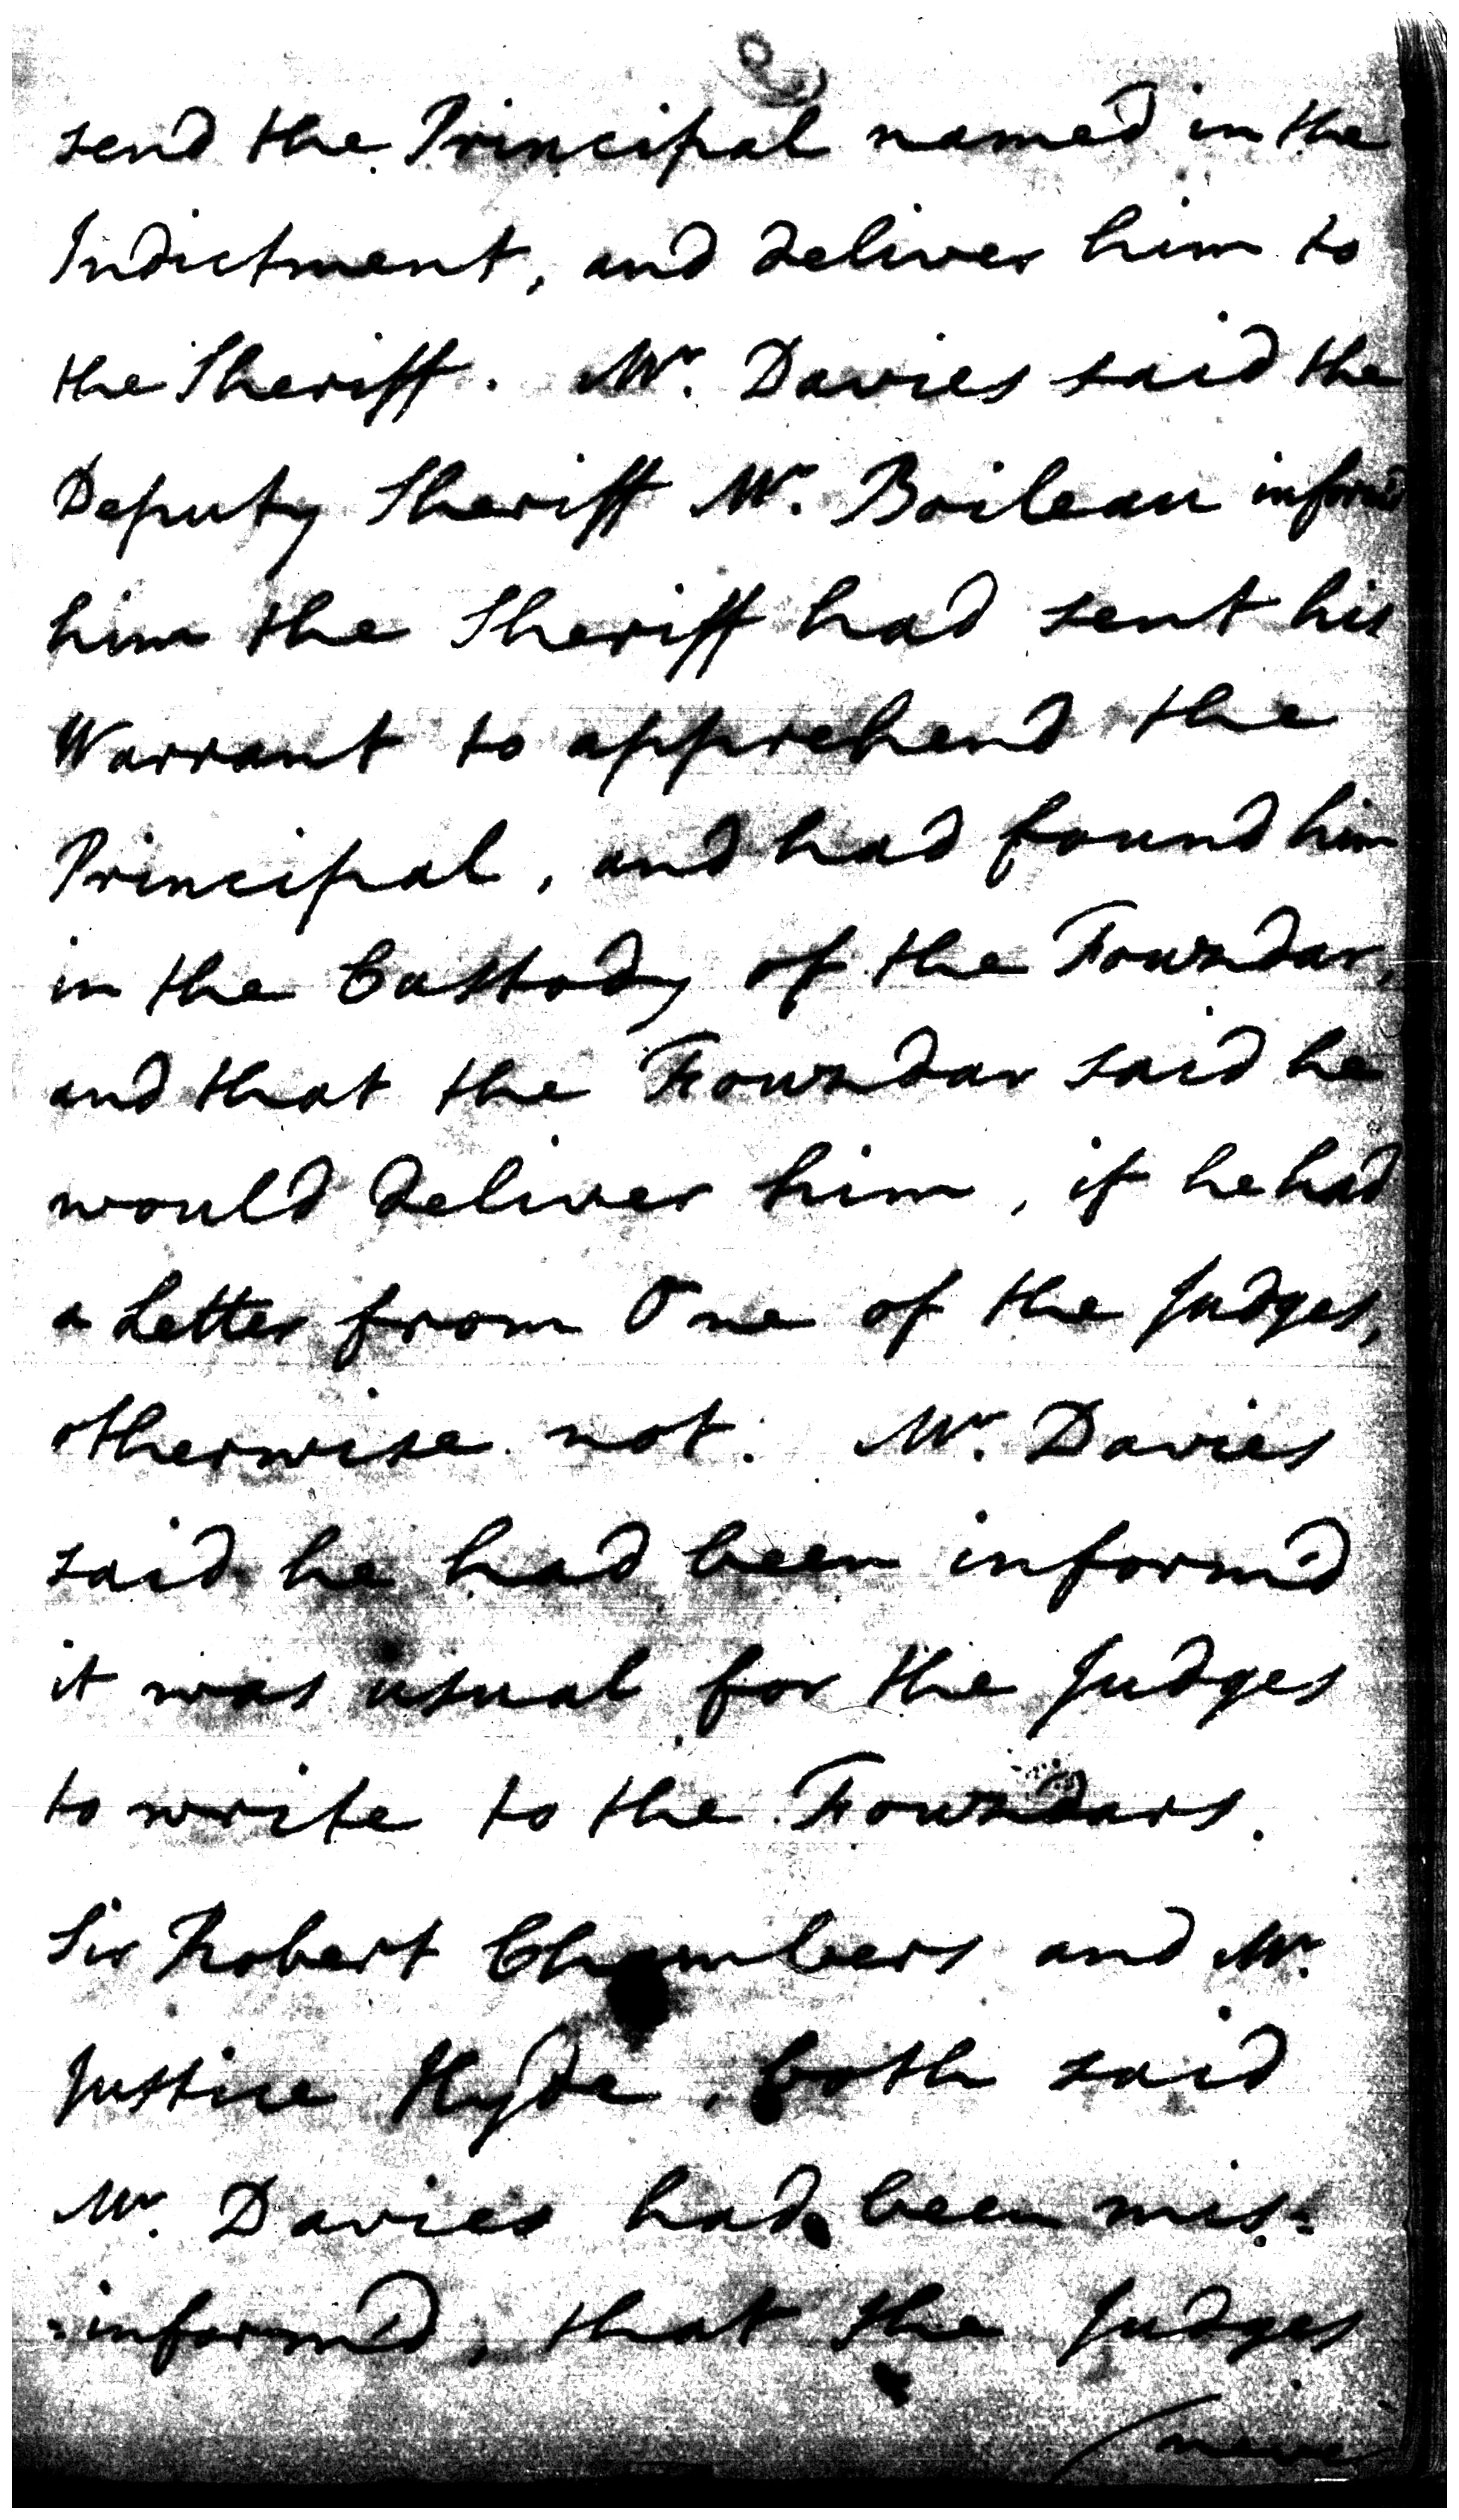 send the Principal named in the
Indictment, and deliver him to
the Sheriff. Mr. Davies said the
Deputy Sheriff Mr. Boileau inform'd
him the Sheriff had sent his
Warrant to apprehend the
Principal, and had found him
in the Custody of the Fowzdar,
and that the Fowzdar said he
would deliver him, if he had
a Letter from One of the Judges,
otherwise not. Mr. Davies
said he had been inform'd
it was usual for the Judges
to write to the Fowzdars.
Sir Robert Chambers and Mr.
Justice Hyde, both said
Mr. Davies had been mis:
:inform'd, that the Judges